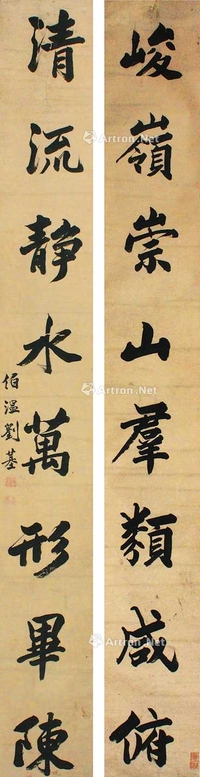 峻嶺崇山羣類咸俯
清流静水萬形畢陳
伯温劉基
Artron.Net
Artron.Net
Artron.Net
Artron.Net
Artron.Net